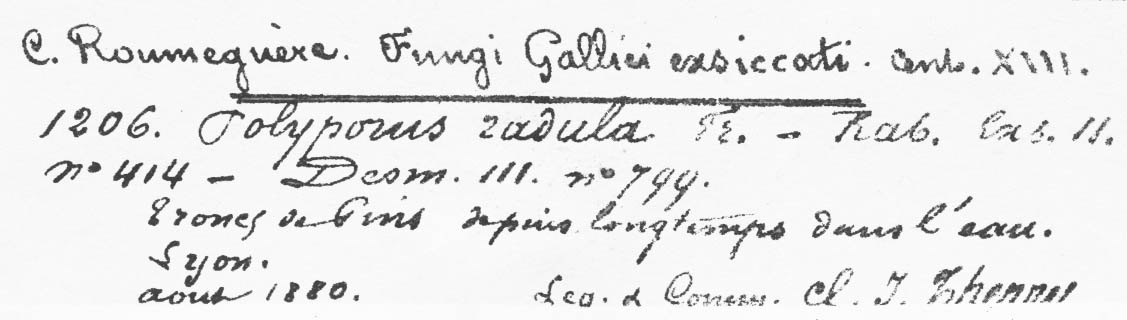 C. Roumeguère. Fungi Gallici exsiccati. Cent. XIII.
1206. Polyporus radula Fr. - Rab. Exs. II.
nº 414 - Desm. III. nº 799.
troncs de Pins depuis longtemps dans l'eau.
Lyon.
aout 1880. Leg. & Comm. Cl. J. Therry